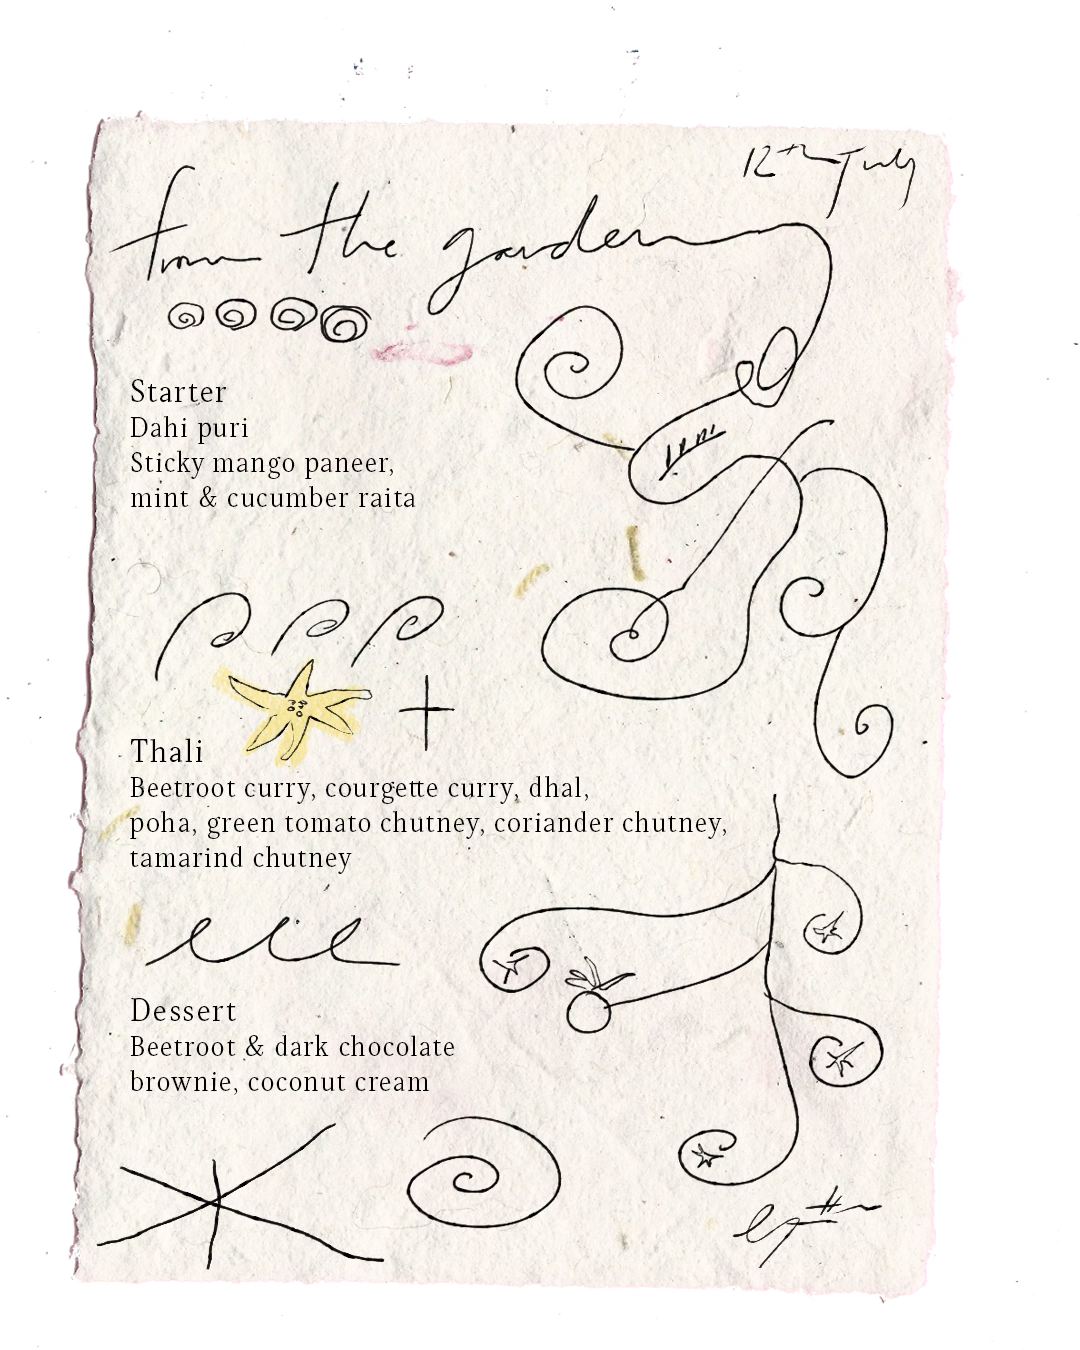 12th July
from the garden
Starter
Dahi puri
Sticky mango paneer,
mint & cucumber raita
Thali
Beetroot curry, courgette curry, dhal,
poha, green tomato chutney, coriander chutney,
tamarind chutney
Dessert
Beetroot & dark chocolate
brownie, coconut cream